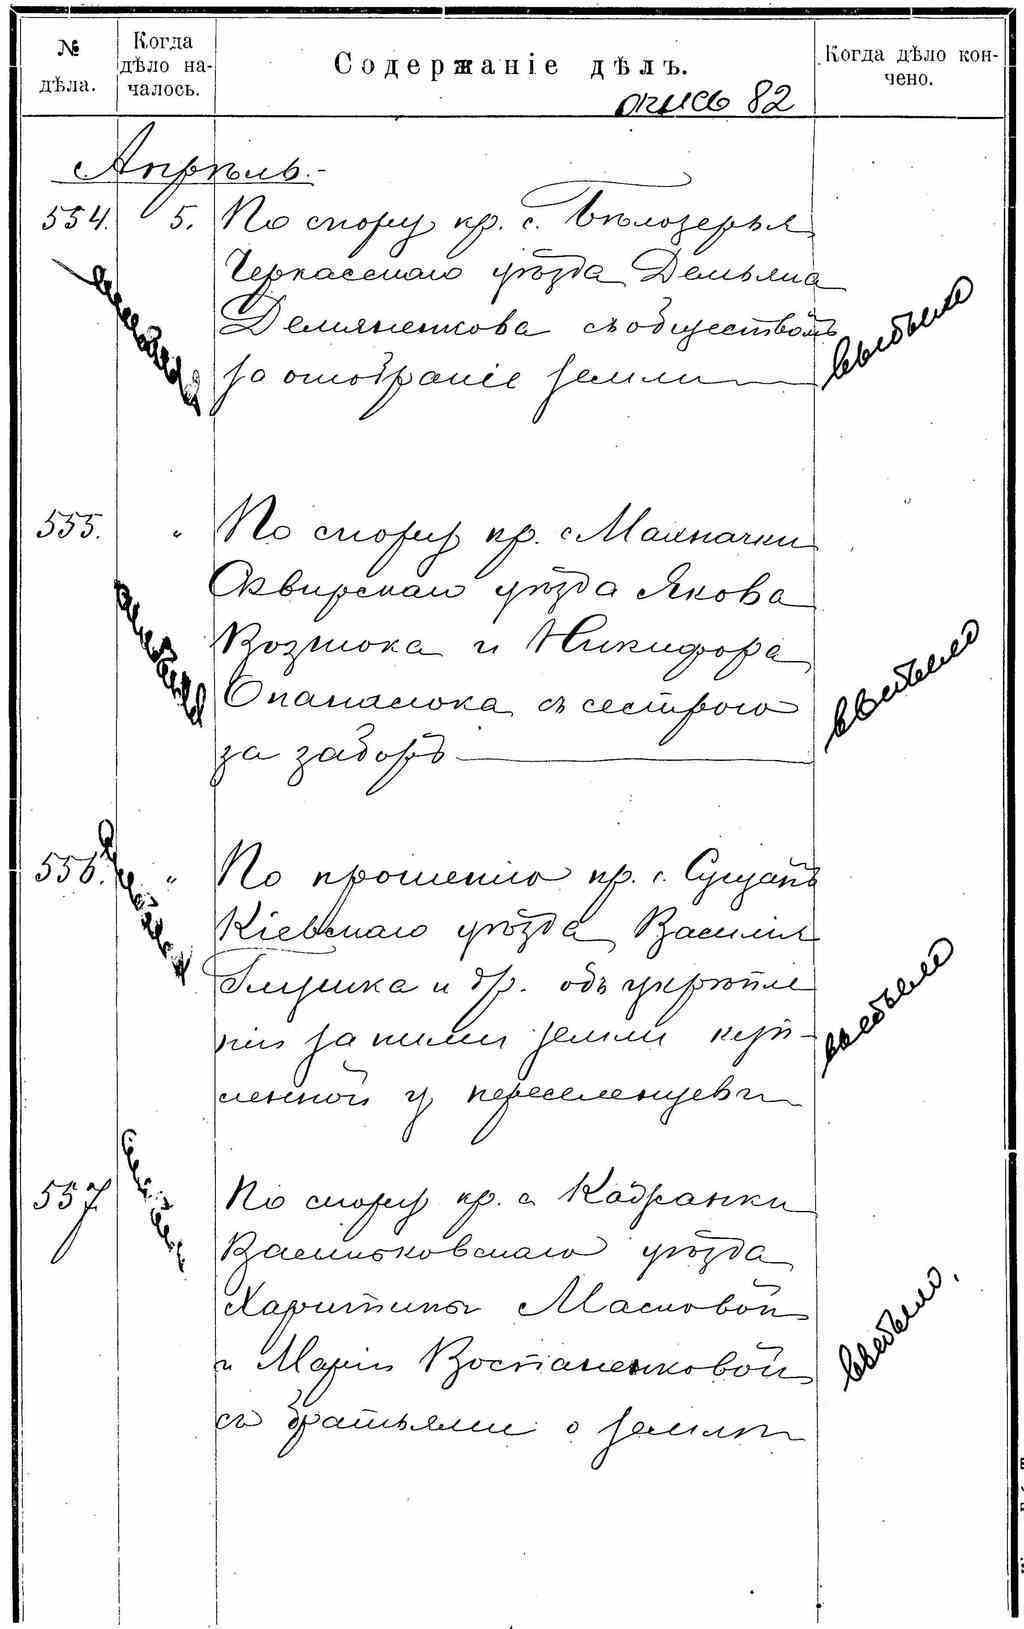 № дѣла.
Когда дѣло на-
чалось.
Содержаніе дѣлъ.
Когда дѣло кон-
чено.
опись 82
Апрѣль.
554. 5. По спору кр. с. Бѣлозерья
Черкасскаго уѣзда Демьяна
Демяненкова съ обществомъ
за отобраніе земли
выбыло
555. " По спору кр. с Малнячки
Сквирскаго уѣзда Якова
Возтюка и Никифора
Опанасюка съ сестрою
за заборъ
выбыло
556. " По прошенію кр. с. Сущанъ
Кіевскаго уѣзда Василія
Глушка и др. объ укрѣпле
ніи за ними земли куп-
ленной у переселенцевъ
выбыло
557 По спору кр. с Кодранки
Васильковскаго уѣзда
Харитины Масловой
и Маріи Востаненковой
съ братьями о землѣ
выбыло.